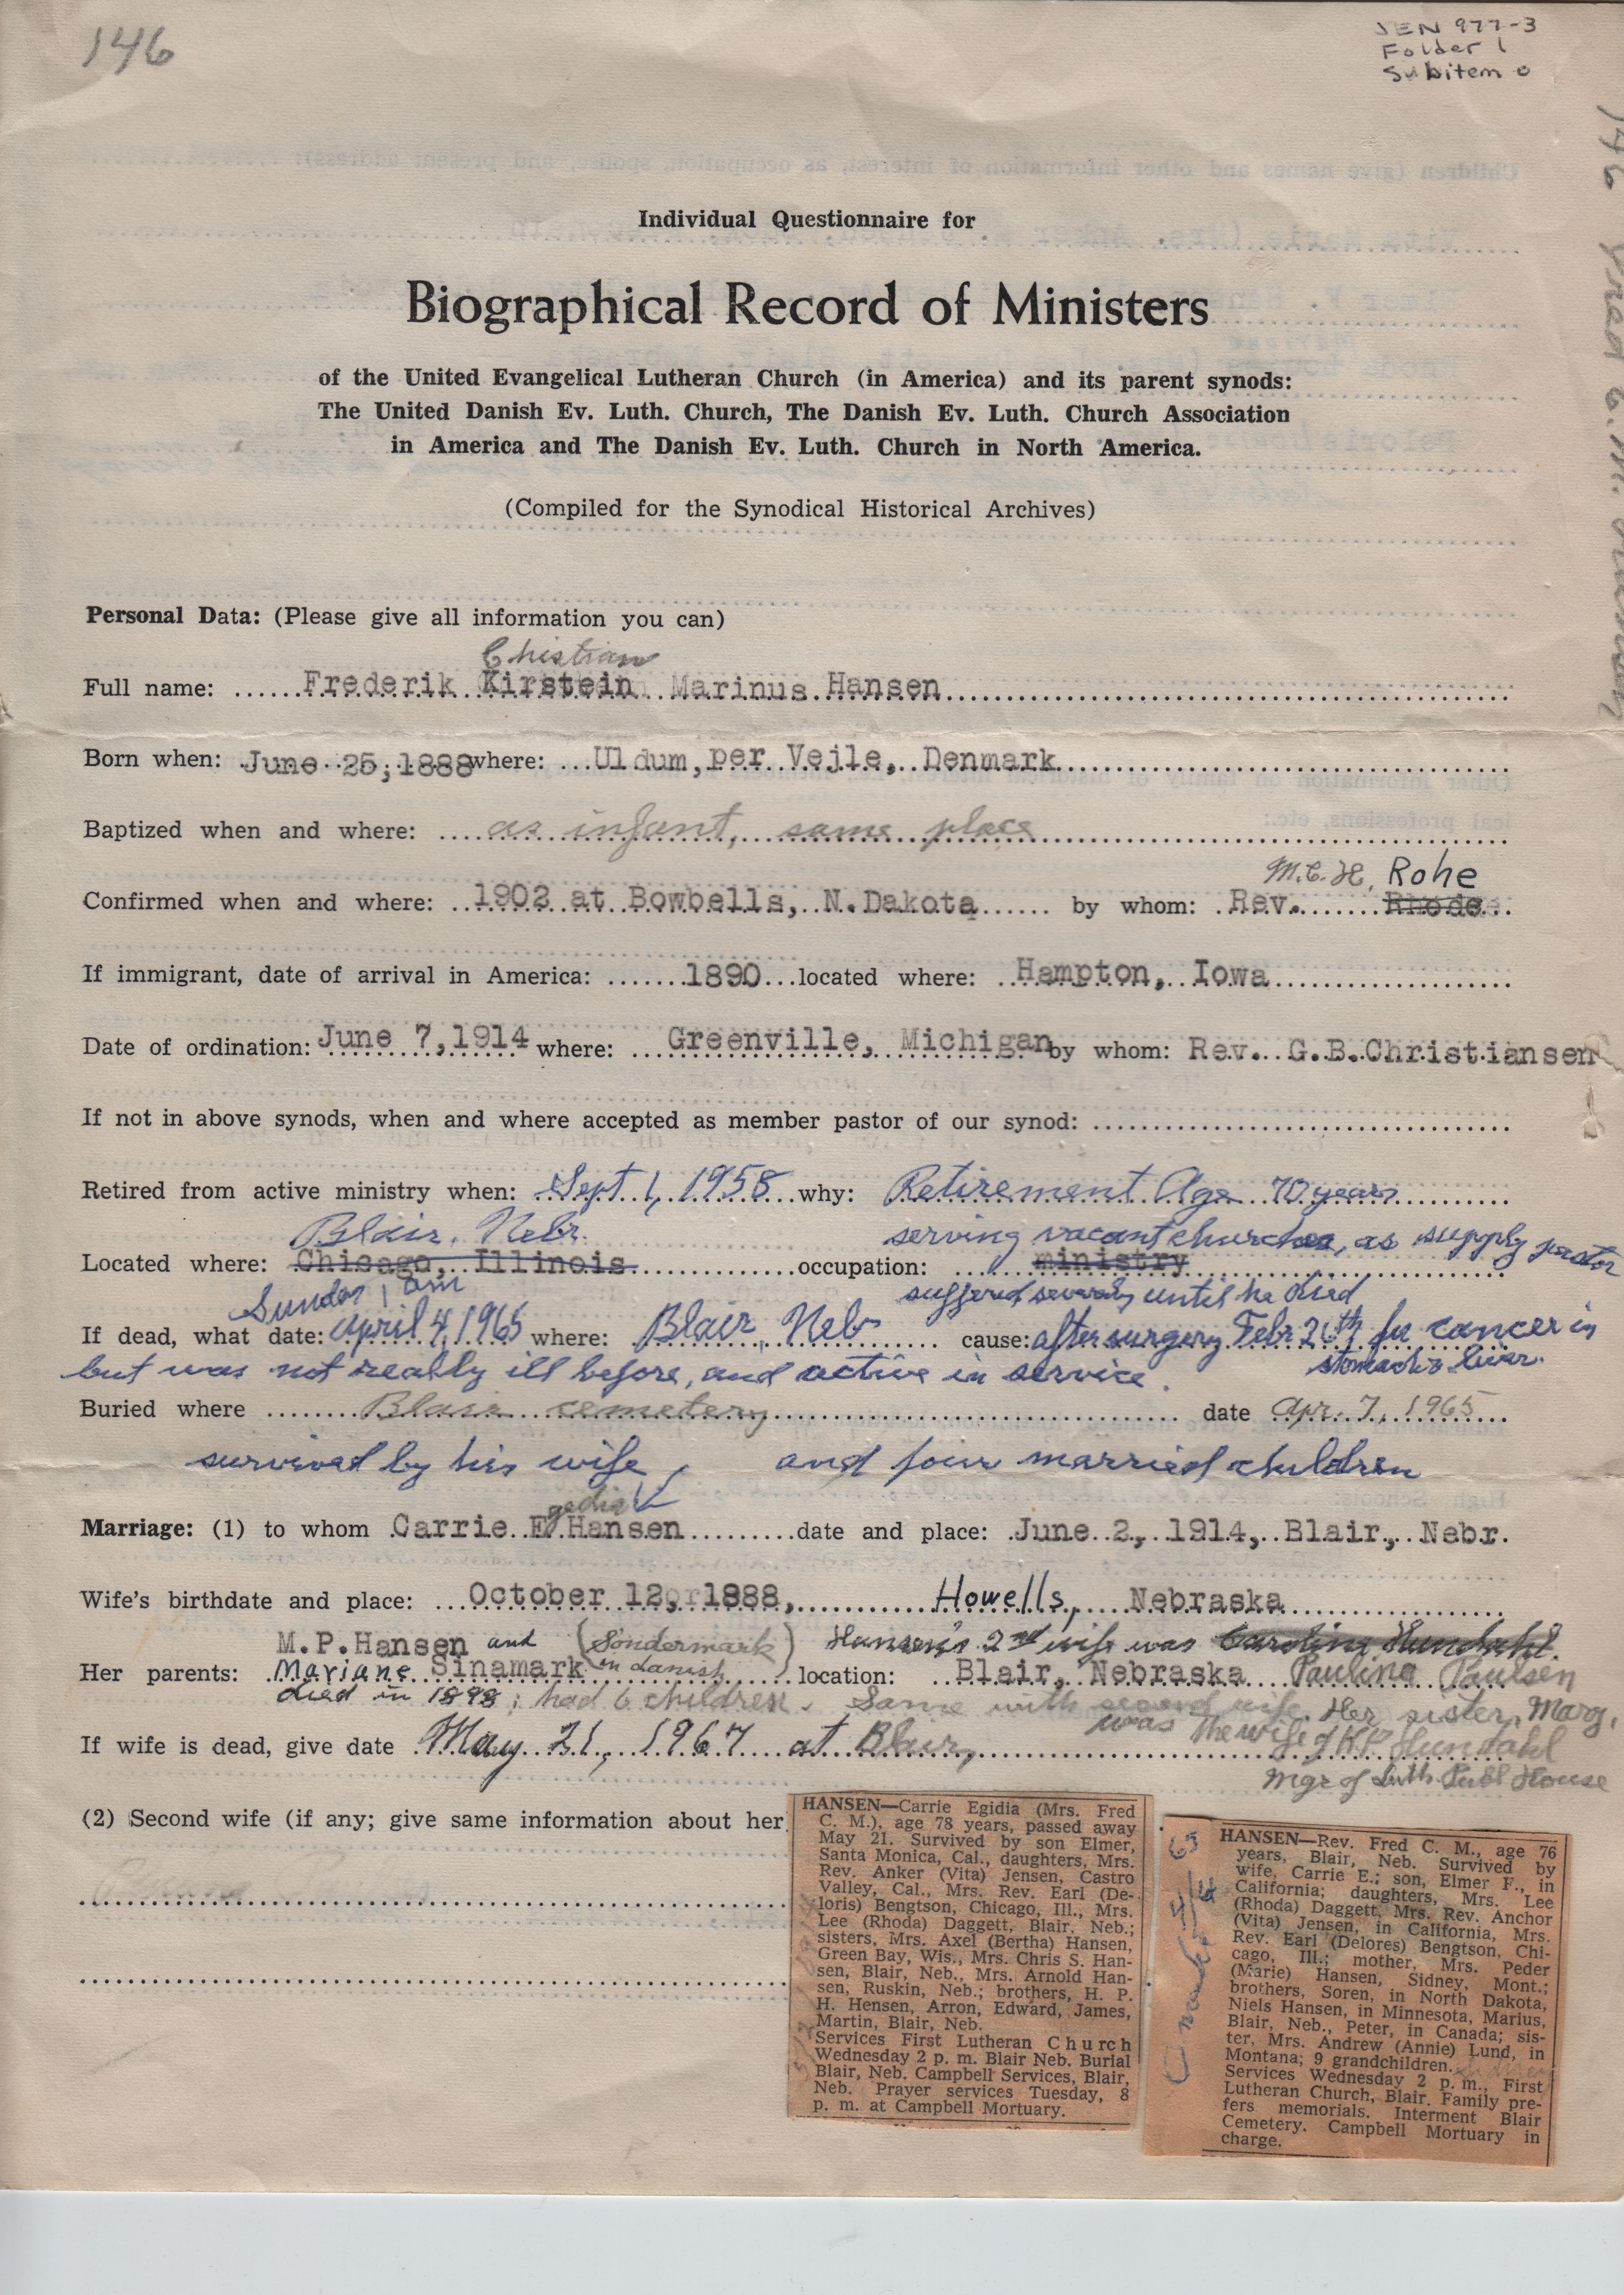 146
JEN 977-3
Folder 1
Subitem 0
Individual Questionnaire for
Biographical Record of Ministers
of the United Evangelical Lutheran Church (in America) and its parent synods:
The United Danish Ev. Luth. Church, The Danish Ev. Luth. Church Association
in America and The Danish Ev. Luth. Church in North America.
(Compiled for the Synodical Historical Archives)
Personal Data: (Please give all information you can)
Christian
Full name: Frederik Kirstein Marinus Hansen
Born when: June 25, 1888 where: Uldum, per Vejle, Denmark
Baptized when and where: as infant, same place
M.C.H. Rohe
Confirmed when and where: 1902 at Bowbells, N. Dakota by whom: Rev. Rhode
If immigrant, date of arrival in America: 1890 located where: Hampton, Iowa
Date of ordination: June 7, 1914 where: Greenville, Michigan by whom: Rev. G.B. Christiansen
If not in above synods, when and where accepted as member pastor of our synod:
Retired from active ministry when: Sept. 1, 1958 why: Retirement Age 70 years
Blair, Nebr. serving vacant churches, as supply pastor
Located where: Chicago, Illinois occupation: ministry
Sunday, am suffered severely until he died
If dead, what date: April 4, 1965 where: Blair, Nebr cause: after surgery Febr 26th for cancer in
but was not really ill before, and active in service. stomach & liver.
Buried where Blair cemetery date Apr. 7, 1965
survived by his wife, and four married children
gedia
Marriage: (1) to whom Carrie E Hansen date and place: June 2, 1914, Blair, Nebr.
Wife's birthdate and place: October 12, 1888, Howells, Nebraska
M.P. Hansen and (Sondermark Hansen's 2nd wife was Caroline Hundahl.
Her parents: Mariane Sinamark in danish) location: Blair, Nebraska Pauline Paulsen
died in 1898; had 6 children. Same with second wife. Her sister, Marg,
was the wife of K.P. Hundahl
If wife is dead, give date May 21, 1967 at Blair,
Mgr of Luth. Publ House
(2) Second wife (if any; give same information about her
HANSEN—Carrie Egidia (Mrs. Fred
C. M.), age 78 years, passed away
May 21. Survived by son Elmer,
Santa Monica, Cal., daughters, Mrs.
Rev. Anker (Vita) Jensen, Castro
Valley, Cal., Mrs. Rev. Earl (De-
loris) Bengtson, Chicago, Ill., Mrs.
Lee (Rhoda) Daggett, Blair, Neb.;
sisters, Mrs. Axel (Bertha) Hansen,
Green Bay, Wis., Mrs. Chris S. Han-
sen, Blair, Neb., Mrs. Arnold Han-
sen, Ruskin, Neb.; brothers, H. P.
H. Hensen, Arron, Edward, James,
Martin, Blair, Neb.
Services First Lutheran Church
Wednesday 2 p. m. Blair Neb. Burial
Blair, Neb. Campbell Services, Blair,
Neb. Prayer services Tuesday, 8
p. m. at Campbell Mortuary.
HANSEN—Rev. Fred C. M., age 76
years, Blair, Neb. Survived by
wife, Carrie E.; son, Elmer F., in
California; daughters, Mrs. Lee
(Rhoda) Daggett, Mrs. Rev. Anchor
(Vita) Jensen, in California, Mrs.
Rev. Earl (Delores) Bengtson, Chi-
cago, Ill.; mother, Mrs. Peder
(Marie) Hansen, Sidney, Mont.;
brothers, Soren, in North Dakota,
Niels Hansen, in Minnesota, Marius,
Blair, Neb., Peter, in Canada; sis-
ter, Mrs. Andrew (Annie) Lund, in
Montana; 9 grandchildren.
Services Wednesday 2 p. m., First
Lutheran Church, Blair. Family pre-
fers memorials. Interment Blair
Cemetery. Campbell Mortuary in
charge.